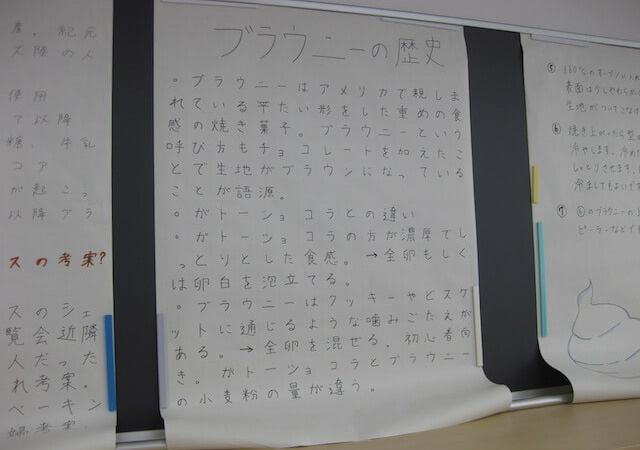 産。紀元
大陸の人
使用
て以降
糖、牛乳
コア
が起こっ
以降ブラ
スの考案?
スのシェ
覧会近隣
人だった
れ考案。
ベーキン
ブラウニーの歴史
。ブラウニーはアメリカで親しま
れている平たい形をした重めの食
感の焼き菓子。ブラウニーという
呼び方もチョコレートを加えたこ
とで生地がブラウンになっている
ことが語源。
。ガトーショコラとの違い
。ガトーショコラの方が濃厚でし
っとりとした食感。→全卵もしく
は卵白を泡立てる。
。ブラウニーはクッキーやビスケ
ットに通じるような噛みごたえが
ある。→全卵を混ぜる。初心者向
き。ガトーショコラとブラウニー
の小麦粉の量が違う。
⑤
表面は少しやわらかく
生地がついてこなけ
⑥ 焼き上がったら型
冷やします。冷めた
しっとりさせます。
冷ましてもよいです
⑦ ⑥のブラウニーの
ピーラーなどで